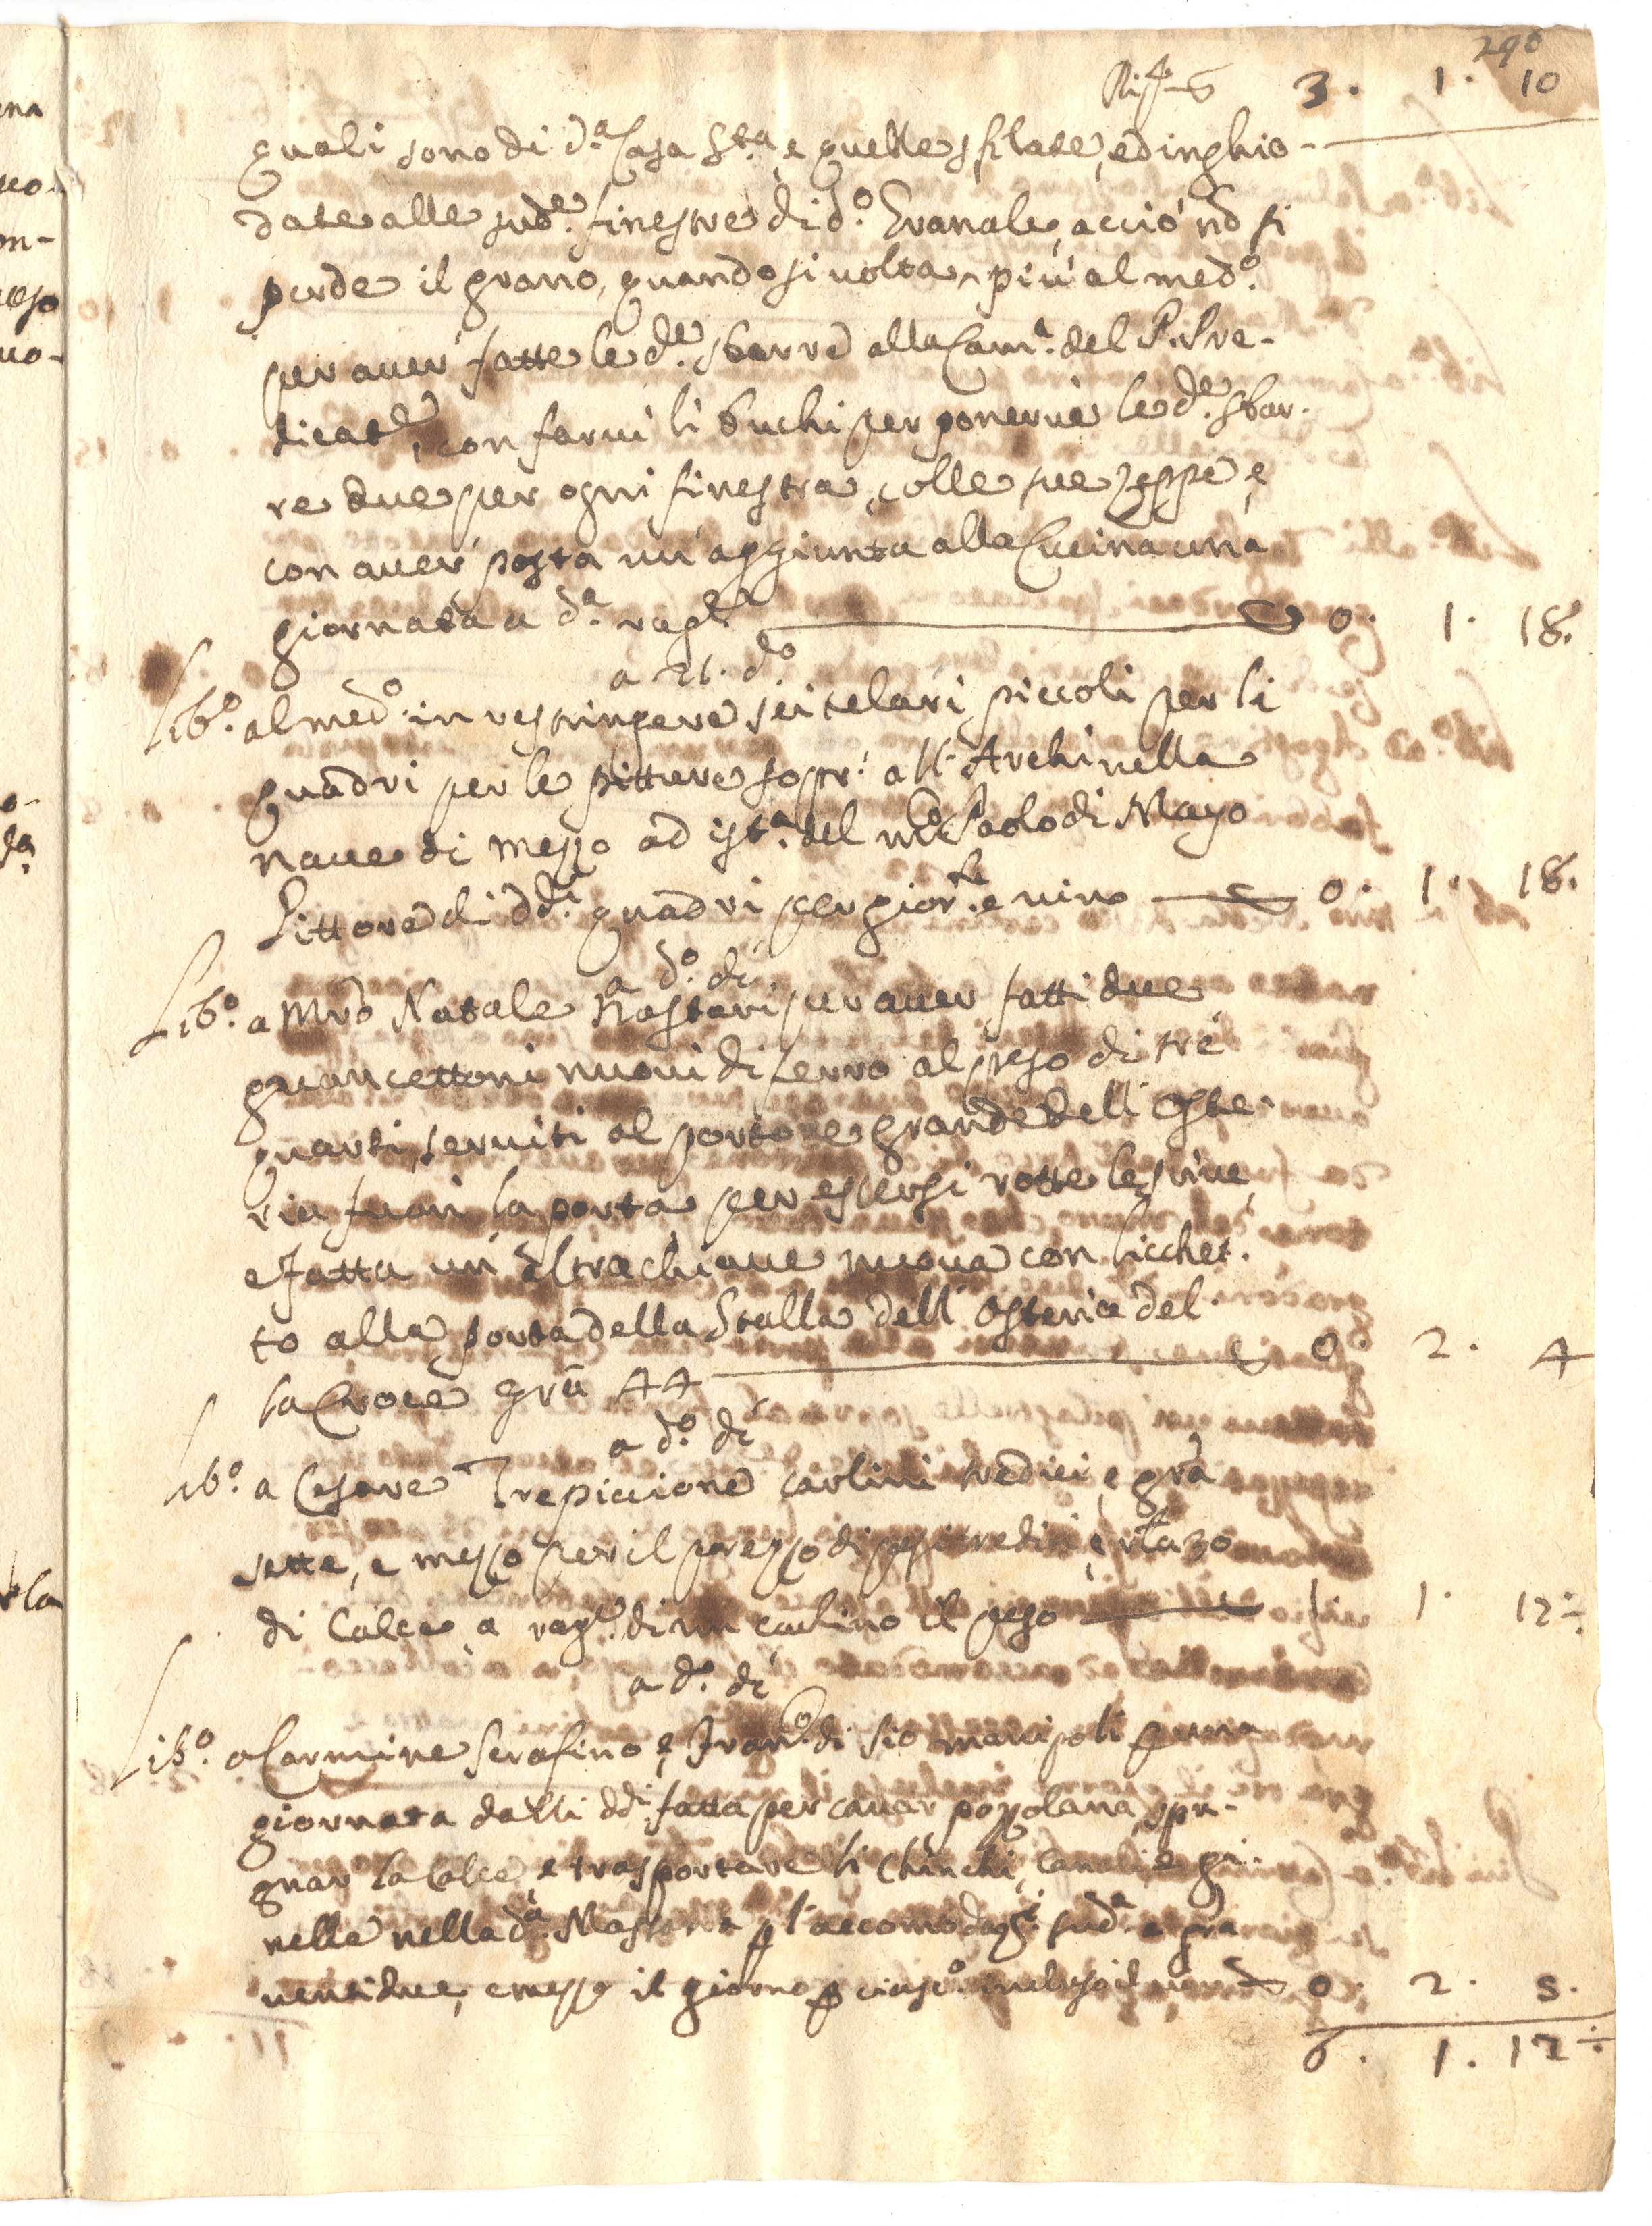 290
3. 1. 10
quali sono di d.a Casa S.ta, e quelle sfilate, ed inghio-
date alle sud.e finestre di d.o Granale, acciò nō si
perde il grano, quando si volta, più al med.o
per aver fatte le d.e sbarre alla Cam.a del P. Pre-
dicat.e, con farvi li buchi per ponerve le d.e sbar-
re due per ogni finestra, colle sue zeppe, e
con aver posta un'aggiunta alla Cucina una
giornata a d.a rag.e 0. 1. 18.
a 21. d.o
Lib.o al med.o in restringere sei telari piccoli per li
quadri per le pitture sopr. all'Archi nella
nave di mezzo ad ist.a del M.co Paolo di Mayo
Pittore di dd.i quadri per gior.ta e vino 0. 1. 18.
a d.o dì
Lib.o a Mro Natale Nastari per aver fatti due
guancettoni nuovi di ferro al peso di trè
quarti, serviti al portone grande dell'Oste-
ria fuori la porta per essersi rotte le prime,
e fatta un'altra chiave nuova con licchet-
to alla porta della Stalla dell'Osteria del
la Croce grā 44 0. 2. 4
a d.o dì
Lib.o a Cesare Trepiccione carlini tredici, e grā
sette, e mezzo per il prezzo di pesi tredici, e r.la 30
di Calce a rag.e di un carlino il peso 1. 1. 12÷
a d.o dì
Lib.o a Carmine Serafino, e Fran.co di Sio manipoli p una
giornata dalli dd.i fatta per cavar pozzolana, spu-
gnar la Calce e trasportare li Chinchi, canali, e pi-
nelle nella d.a Massaria p l'accomodaz.i sud.a a grā
ventidue, e mezzo il giorno p ciasc.o incluso il vino 0. 2. 5.
6. 1. 12÷